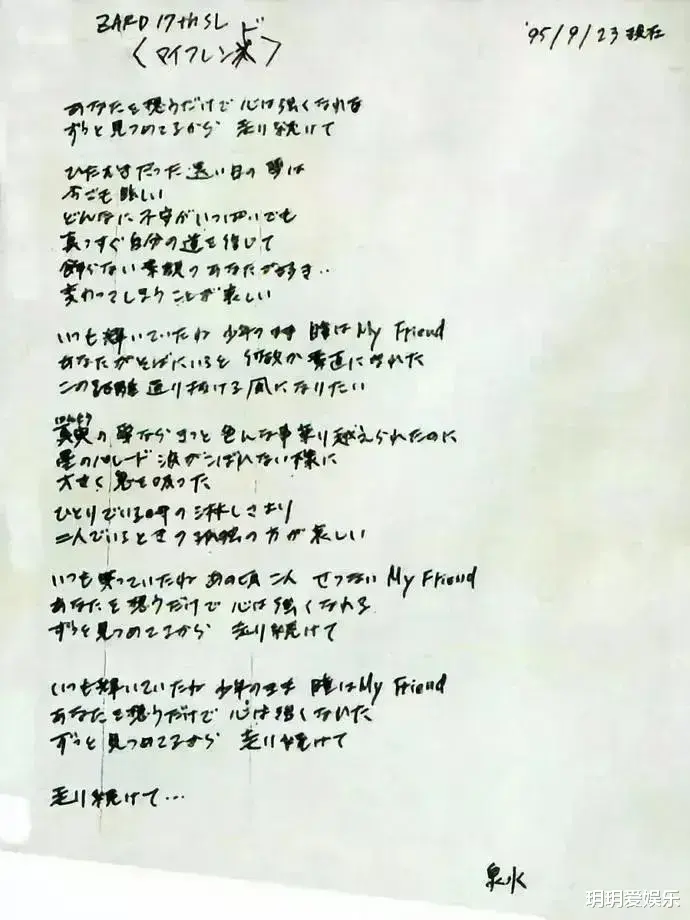 ZARD 17th SL
'95/9/23 現在
〈マイフレンド〉
あなたを想うだけで 心は強くなれる
ずっと見つめてるから 走り続けて
ひたむきだった遠い日の夢は
今でも眩しい
どんなに不安がいっぱいでも
真っすぐ自分の道を信じて
飾らない素顔のあなたが好き‥
変わってしまうことが哀しい
いつも輝いていたね 少年のまま 瞳はMy Friend
あなたがそばにいると 何故か素直になれた
この距離通り抜ける風になりたい
真実の夢ならきっと色んな事乗り越えられたのに
星のパレード 涙がこぼれない様に
大きく息を吸った
ひとりでいる時の淋しさより
二人でいるときの孤独の方が哀しい
いつも笑っていたね あの頃二人 せつない My Friend
あなたを想うだけで 心は強くなれる
ずっと見つめてるから 走り続けて
いつも輝いていたね 少年のまま 瞳はMy Friend
あなたを想うだけで 心は強くなれた
ずっと見つめてるから 走り続けて
走り続けて…
泉水
玥玥爱娱乐